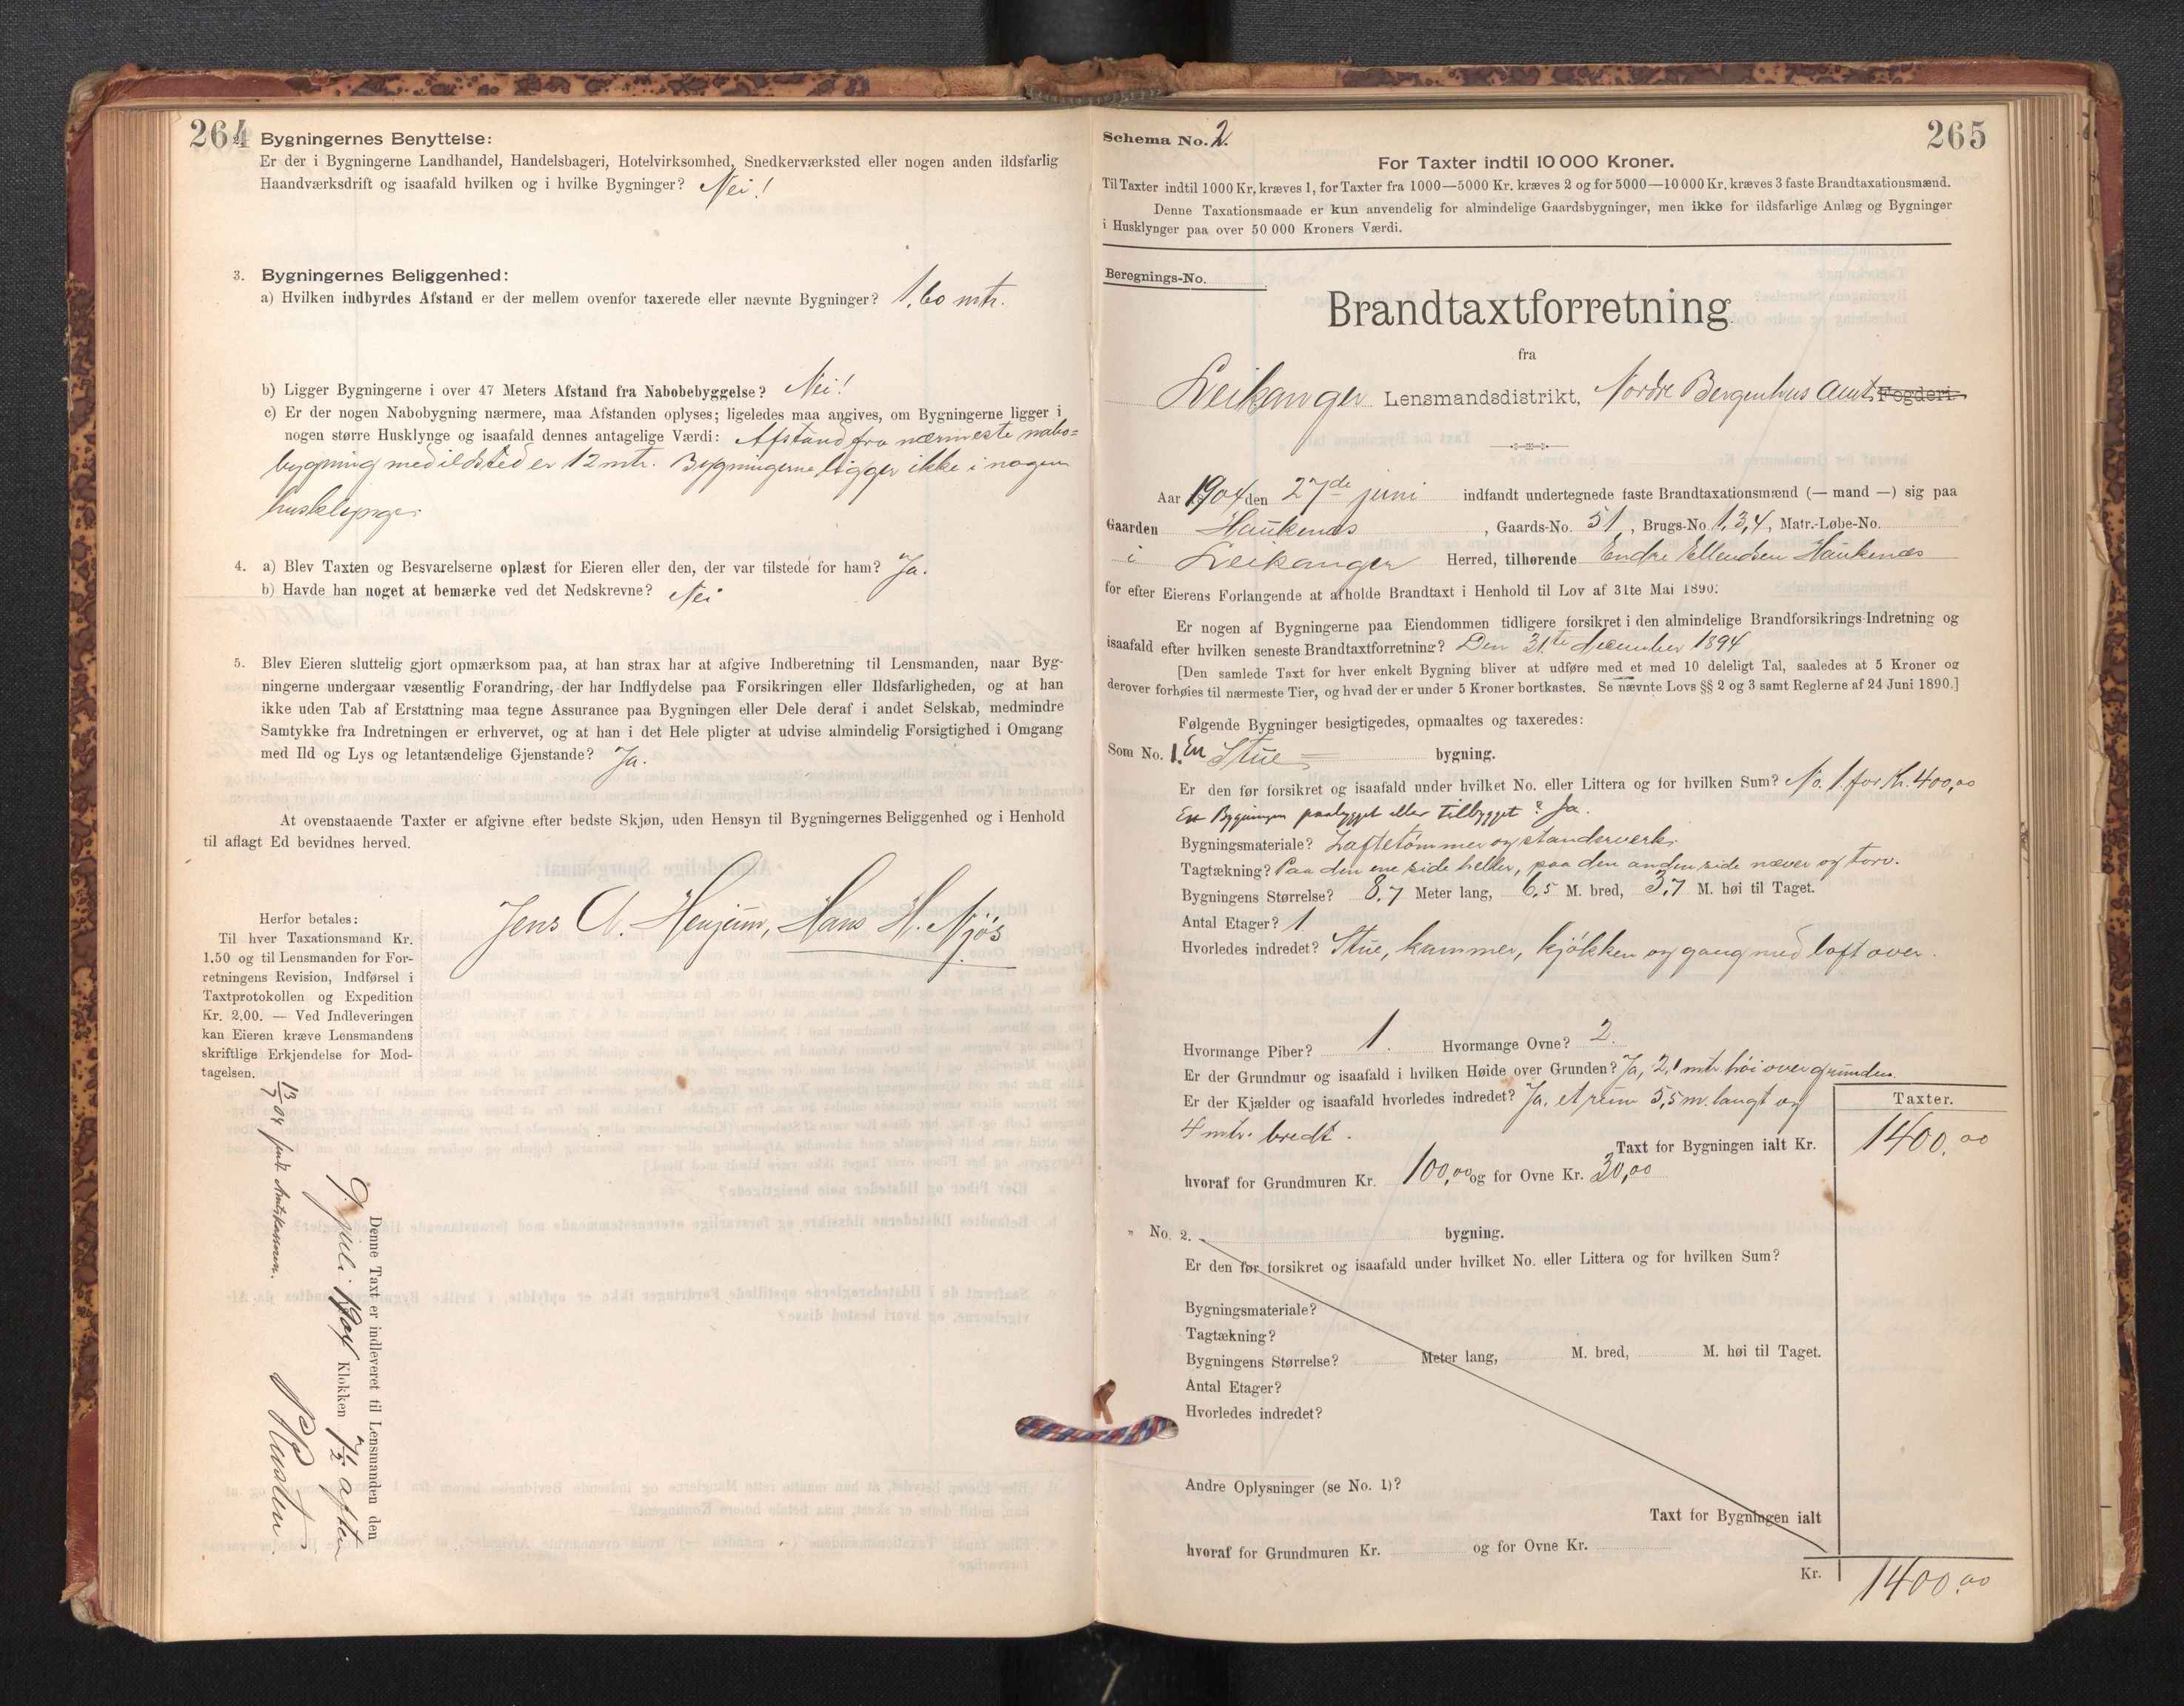 264
Bygningernes Benyttelse:
Er der i Bygningerne Landhandel, Handelsbageri, Hotelvirksomhed, Snedkerværksted eller nogen anden ildsfarlig
Haandværksdrift og isaafald hvilken og i hvilke Bygninger? Nei!
3. Bygningernes Beliggenhed:
a) Hvilken indbyrdes Afstand er der mellem ovenfor taxerede eller nævnte Bygninger? 1,60 mtr.
b) Ligger Bygningerne i over 47 Meters Afstand fra Nabobebyggelse? Nei!
c) Er der nogen Nabobygning nærmere, maa Afstanden oplyses; ligeledes maa angives, om Bygningerne ligger i
nogen større Husklynge og isaafald dennes antagelige Værdi: Afstand fra nærmeste nabo=
bygning med ildsted er 12 mtr. Bygningerne ligger ikke i nogen
husklynge.
4. a) Blev Taxten og Besvarelserne oplæst for Eieren eller den, der var tilstede for ham? Ja.
b) Havde han noget at bemærke ved det Nedskrevne? Nei
5. Blev Eieren sluttelig gjort opmærksom paa, at han strax har at afgive Indberetning til Lensmanden, naar Byg-
ningerne undergaar væsentlig Forandring, der har Indflydelse paa Forsikringen eller Ildsfarligheden, og at han
ikke uden Tab af Erstatning maa tegne Assurance paa Bygningen eller Dele deraf i andet Selskab, medmindre
Samtykke fra Indretningen er erhvervet, og at han i det Hele pligter at udvise almindelig Forsigtighed i Omgang
med Ild og Lys og letantændelige Gjenstande? Ja.
At ovenstaaende Taxter er afgivne efter bedste Skjøn, uden Hensyn til Bygningernes Beliggenhed og i Henhold
til aflagt Ed bevidnes herved.
Jens A. Henjum, Hans H. Njøs
Herfor betales:
Til hver Taxationsmand Kr.
1.50 og til Lensmanden for For-
retningens Revision, Indførsel i
Taxtprotokollen og Expedition
Kr. 2.00. — Ved Indleveringen
kan Eieren kræve Lensmandens
skriftlige Erkjendelse for Mod-
tagelsen.
Denne Taxt er indleveret til Lensmanden den
9. juli 1904 Klokken 7½ aften
13/7 04 sendt Amtskassereren.
Schema No. 2.
265
For Taxter indtil 10 000 Kroner.
Til Taxter indtil 1000 Kr. kræves 1, for Taxter fra 1000—5000 Kr. kræves 2 og for 5000—10 000 Kr. kræves 3 faste Brandtaxationsmænd.
Denne Taxationsmaade er kun anvendelig for almindelige Gaardsbygninger, men ikke for ildsfarlige Anlæg og Bygninger
i Husklynger paa over 50 000 Kroners Værdi.
Beregnings-No.
Brandtaxtforretning
fra
Leikanger Lensmandsdistrikt, Nordre Bergenhus Amt. Fogderi.
Aar 1904 den 27de juni indfandt undertegnede faste Brandtaxationsmænd (— mand —) sig paa
Gaarden Haukenæs, Gaards-No. 51, Brugs-No. 1,3,4, Matr.-Løbe-No.
i Leikanger Herred, tilhørende Endre Ellendsen Haukenæs
for efter Eierens Forlangende at afholde Brandtaxt i Henhold til Lov af 31te Mai 1890.
Er nogen af Bygningerne paa Eiendommen tidligere forsikret i den almindelige Brandforsikrings-Indretning og
isaafald efter hvilken seneste Brandtaxtforretning? Den 31.te december 1894
[Den samlede Taxt for hver enkelt Bygning bliver at udføre med et med 10 deleligt Tal, saaledes at 5 Kroner og
derover forhøies til nærmeste Tier, og hvad der er under 5 Kroner bortkastes. Se nævnte Lovs §§ 2 og 3 samt Reglerne af 24 Juni 1890.]
Følgende Bygninger besigtigedes, opmaaltes og taxeredes:
Som No. 1. En Stue bygning.
Er den før forsikret og isaafald under hvilket No. eller Littera og for hvilken Sum? No. 1. for Kr. 400,00
Er Bygningen paabygget eller tilbygget? Ja.
Bygningsmateriale? Laftetømmer og standerverk.
Tagtækning? Paa den ene side heller, paa den anden side næver og torv.
Bygningens Størrelse? 8,7 Meter lang, 6,5 M. bred, 3,7 M. høi til Taget.
Antal Etager? 1
Hvorledes indredet? Stue, kammer, kjøkken og gang med loft over.
Hvormange Piber? 1. Hvormange Ovne? 2.
Er der Grundmur og isaafald i hvilken Høide over Grunden? Ja, 2,1 mtr. høi over grunden.
Er der Kjælder og isaafald hvorledes indredet? Ja, et rum 5,5 m. langt og
4 mtr. bredt.
Taxter.
Taxt for Bygningen ialt Kr. 1400,00
hvoraf for Grundmuren Kr. 100,00 og for Ovne Kr. 30,00
" No. 2. bygning.
Er den før forsikret og isaafald under hvilket No. eller Littera og for hvilken Sum?
Bygningsmateriale?
Tagtækning?
Bygningens Størrelse? Meter lang, M. bred, M. høi til Taget.
Antal Etager?
Hvorledes indredet?
Andre Oplysninger (se No. 1)?
Taxt for Bygningen ialt
hvoraf for Grundmuren Kr. og for Ovne Kr.
Kr. 1400,00